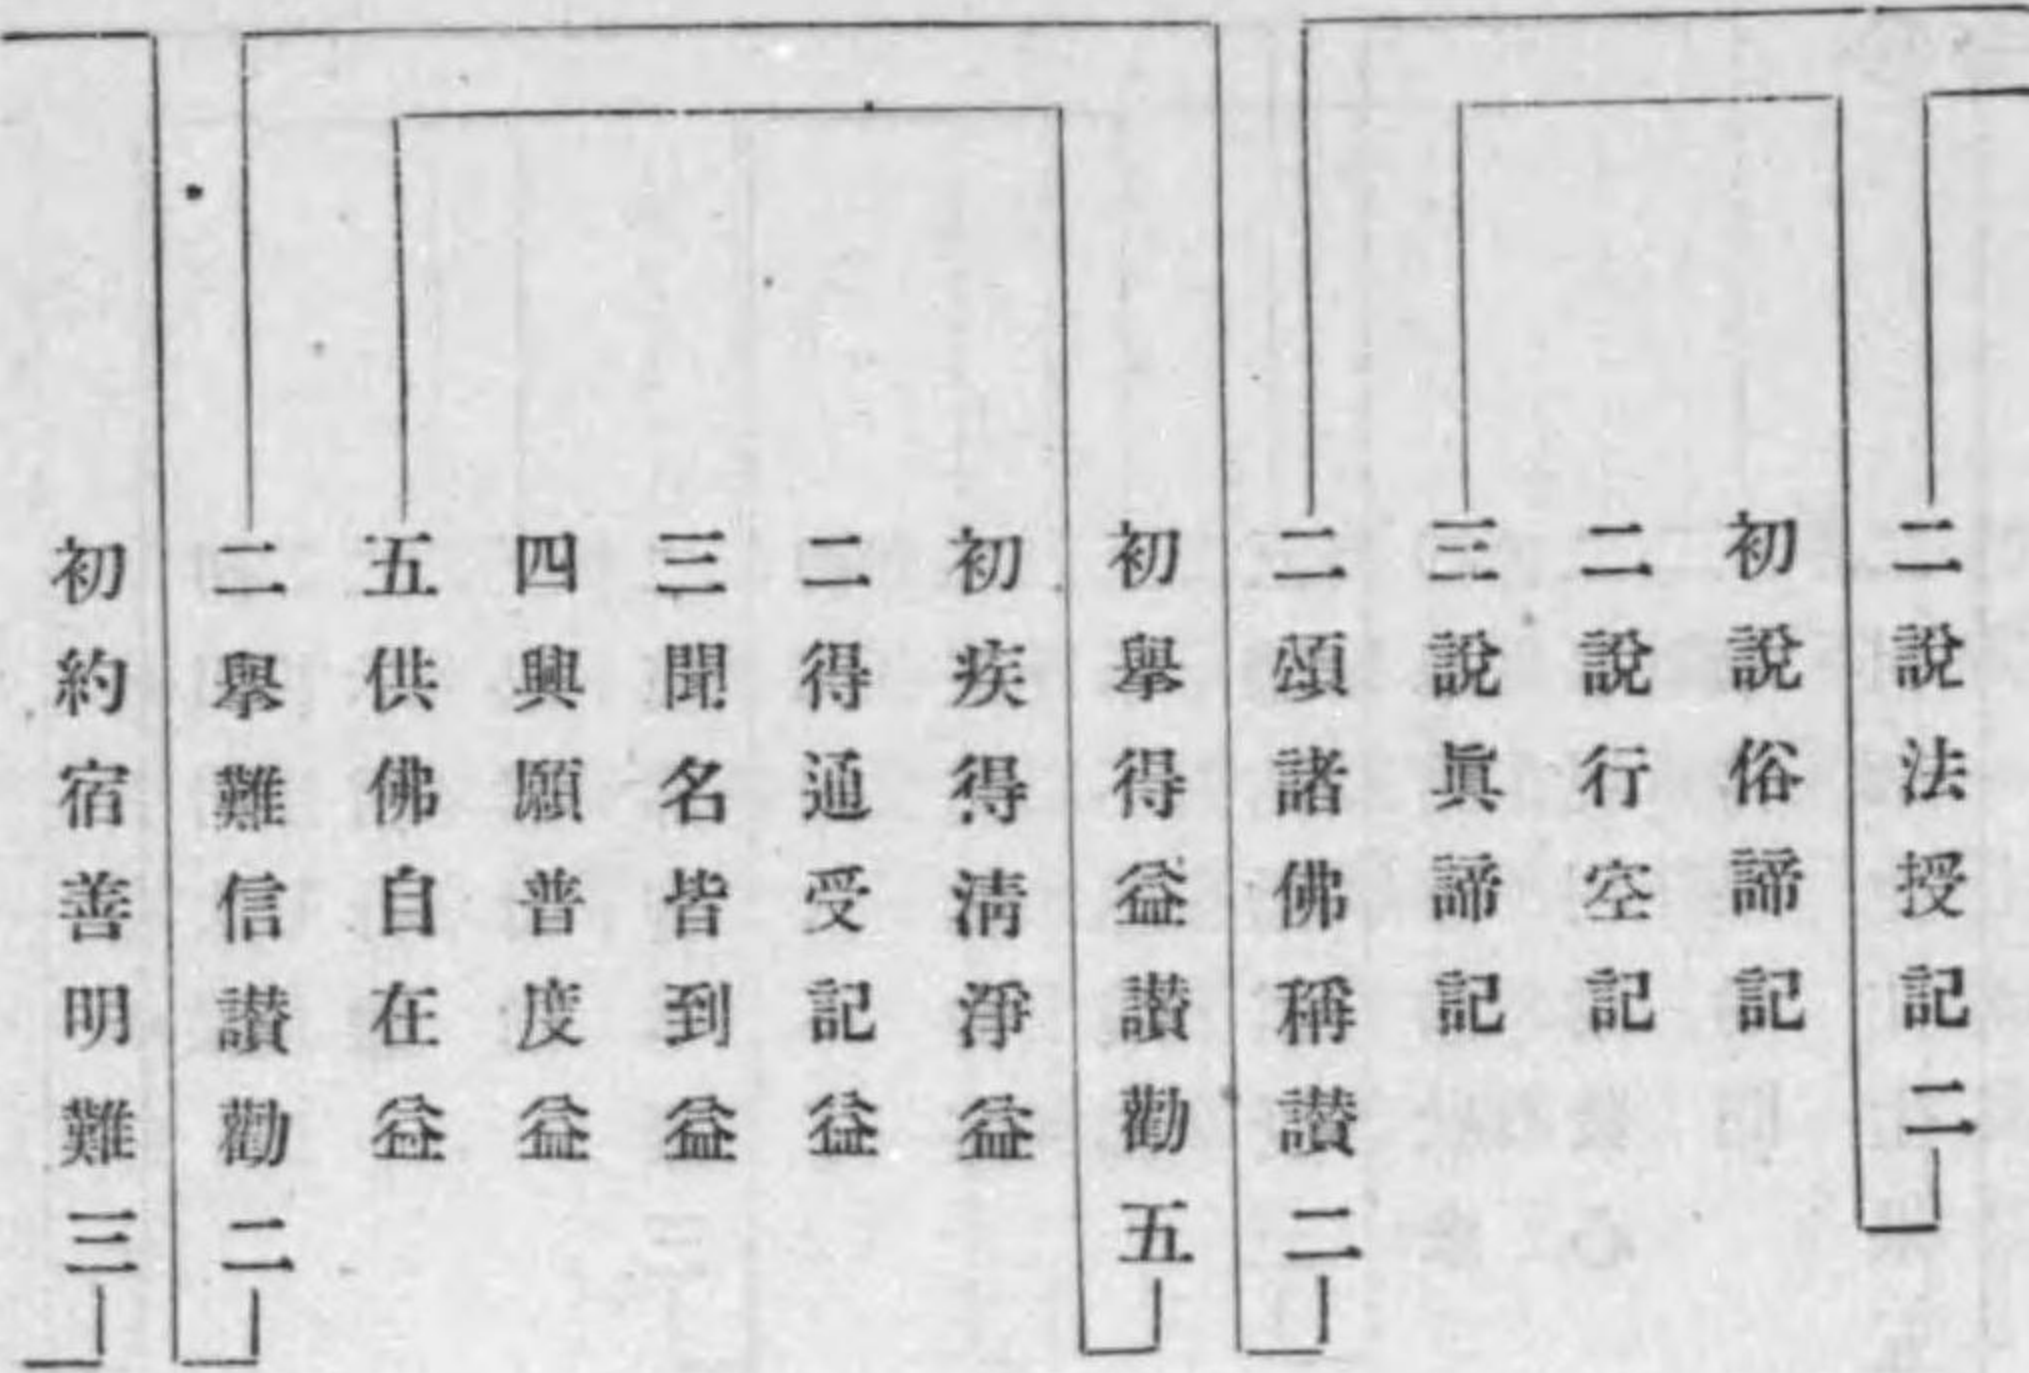 二說法授記二
初說俗諦記
二說行空記
三說眞諦記
二頌諸佛稱讃二
初舉得益讃勸五
初疾得淸淨益
二得通受記益
三聞名皆到益
四興願普度益
五供佛自在益
二舉難信讃勸二
初約宿善明難三